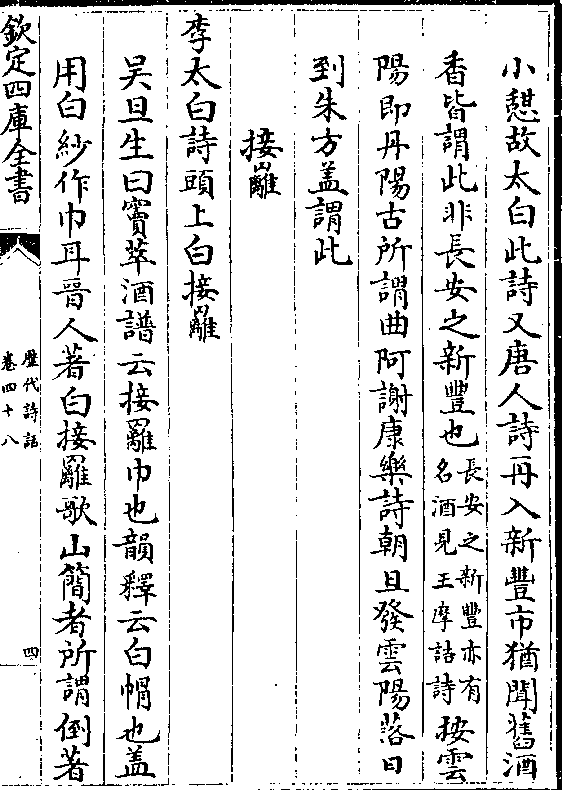 小憇故太白此詩又唐人詩再入新豐市猶聞舊酒
香皆謂此非長安之新豐也長安之新豐亦有名酒見王摩詰詩按雲
陽即丹陽古所謂曲阿謝康樂詩朝旦發雲陽落日
到朱方盖謂此
接䍦
李太白詩頭上白接䍦
吴旦生曰竇苹酒譜云接䍦巾也韻釋云白帽也盖
用白紗作巾耳晉人著白接䍦歌山簡者所謂倒著
欽定四庫全書
歴代詩話
卷四十八
四